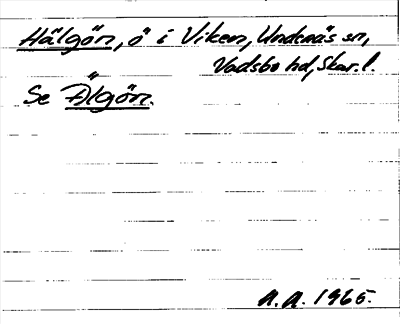 Hälgön, ö i Viken, Undenäs sn,
Vadsbo hd, Skar. l.
Se Älgön.
A. A. 1965.